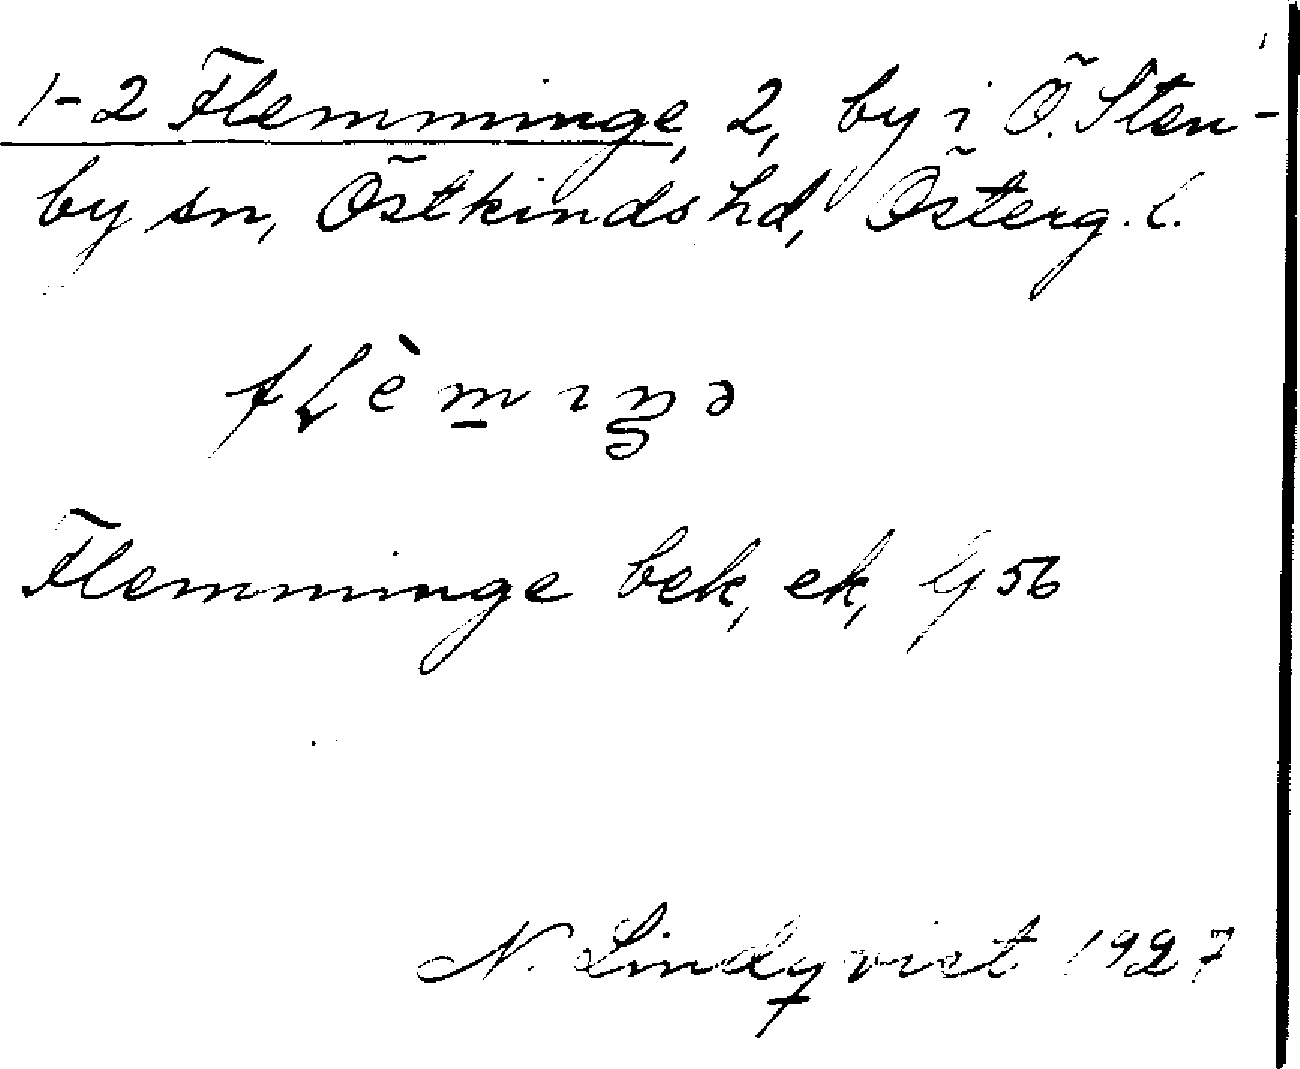 1-2 Flemminge, 2, by i Ö. Sten-
by sn, Östkinds hd, Österg. l.
Flemminge bek, ek, G 56
N. Lindqvist 1927